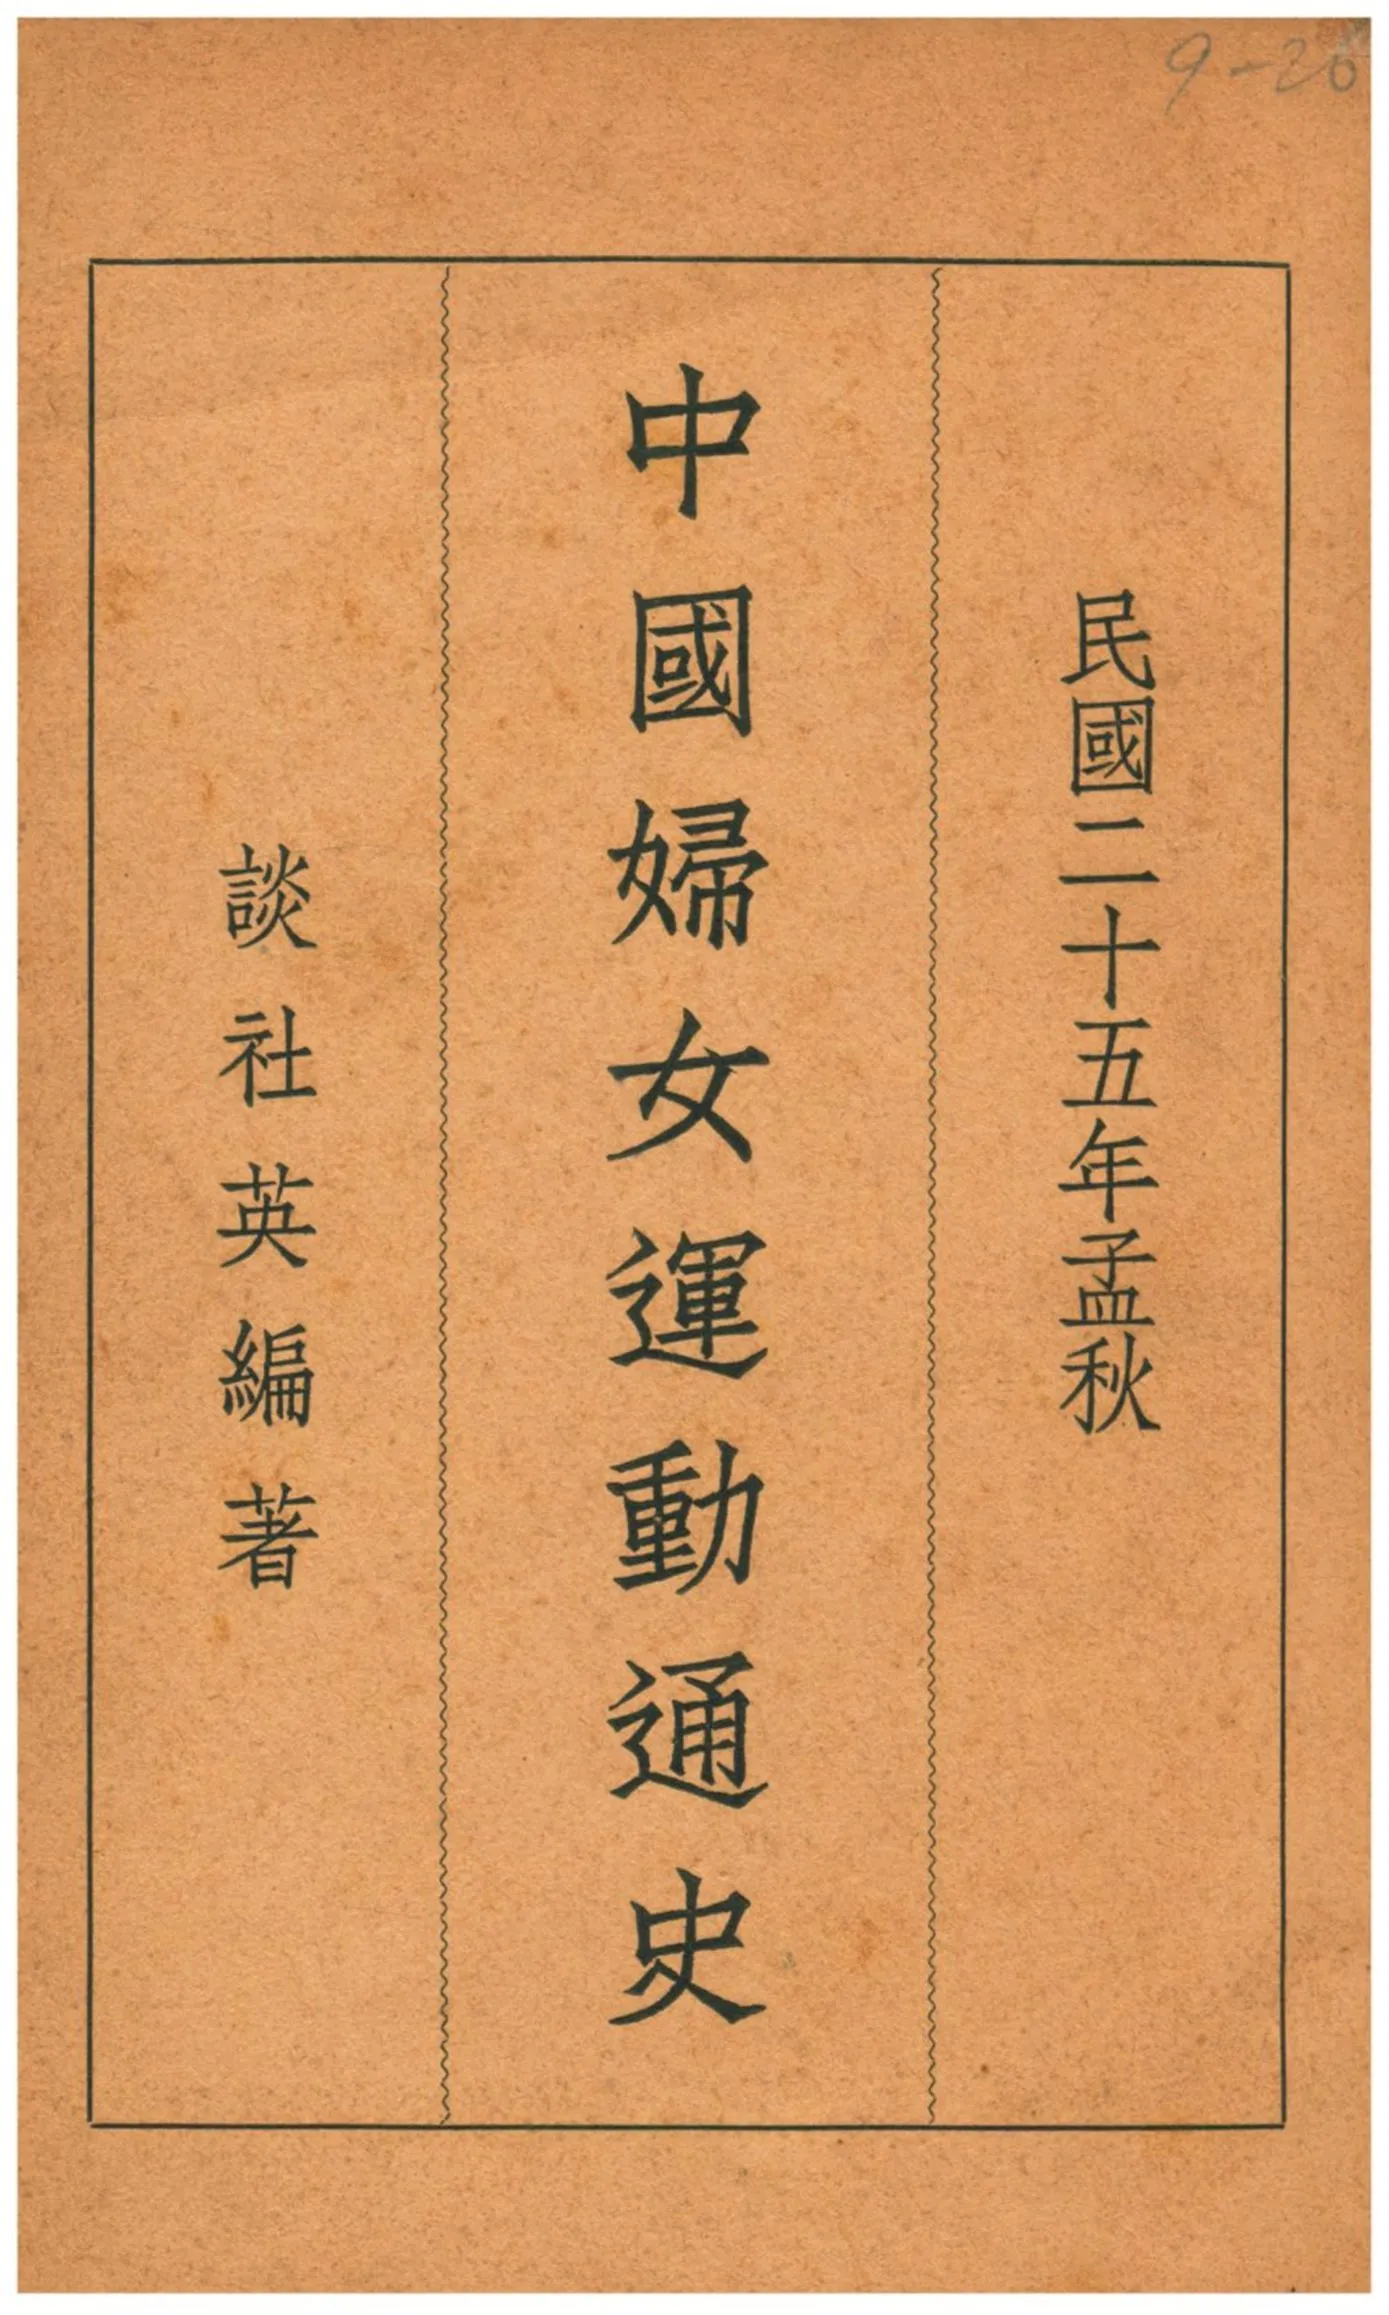 9-26
民國二十五年孟秋
中國婦女運動通史
談社英編著